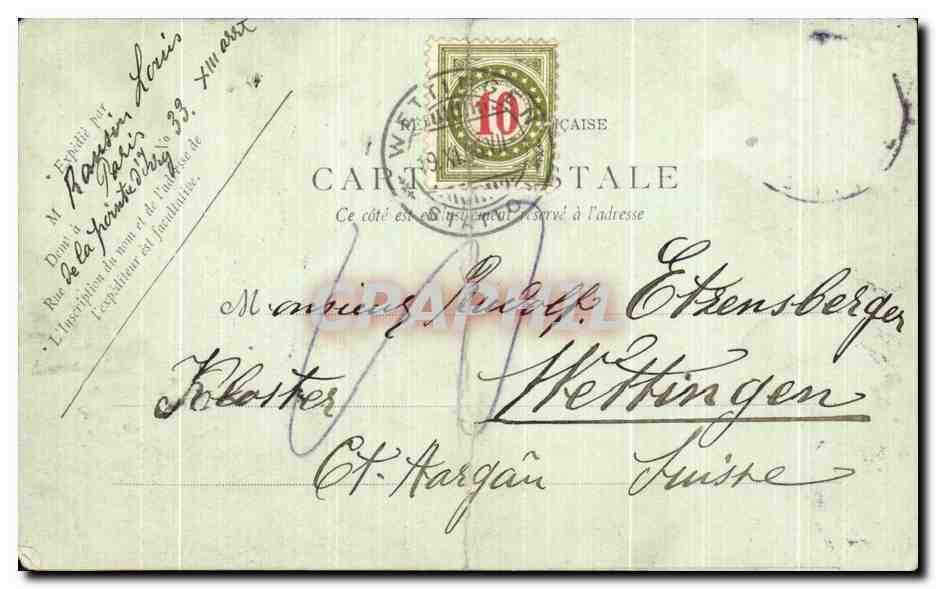 Expédié par
M Rousin Louis
Demt à Paris
Rue de la pointe d'Ivry No 33. XIII arrt
L'Inscription du nom et de l'adresse de
l'expéditeur est facultative.
10
WETTINGEN
STATION
RÉPUBLIQUE FRANÇAISE
CARTE POSTALE
Ce côté est exclusivement réservé à l'adresse
CPAPHIL
Monsieur Rudolf. Etzensberger
Kloster Wettingen
Ct. Aargau Suisse